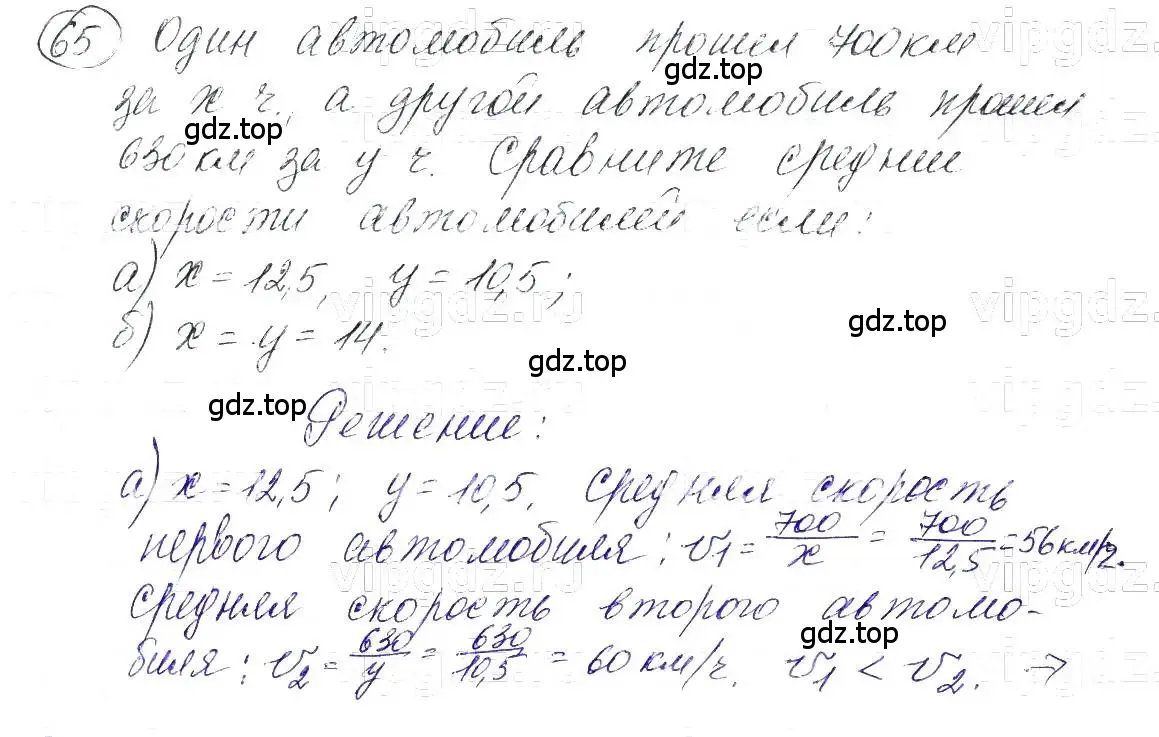 65 Один автомобиль прошел 700 км
за x ч., а другой автомобиль прошел
630 км за y ч. Сравните средние
скорости автомобилей если:
а) x = 12,5, y = 10,5;
б) x = y = 14.
Решение:
а) x = 12,5; y = 10,5, средняя скорость
первого автомобиля: v₁ = 700/x = 700/12,5 = 56 км/ч.
средняя скорость второго автомо-
биля: v₂ = 630/y = 630/10,5 = 60 км/ч. v₁ < v₂. →
gdz.top
gdz.top
gdz.top
gdz.top
gdz.top
gdz.top
vipgdz.ru
vipgdz.
vipgdz.ru
vipgdz.
vipgdz.ru
vipgdz.
vipgdz.ru
vipgdz.